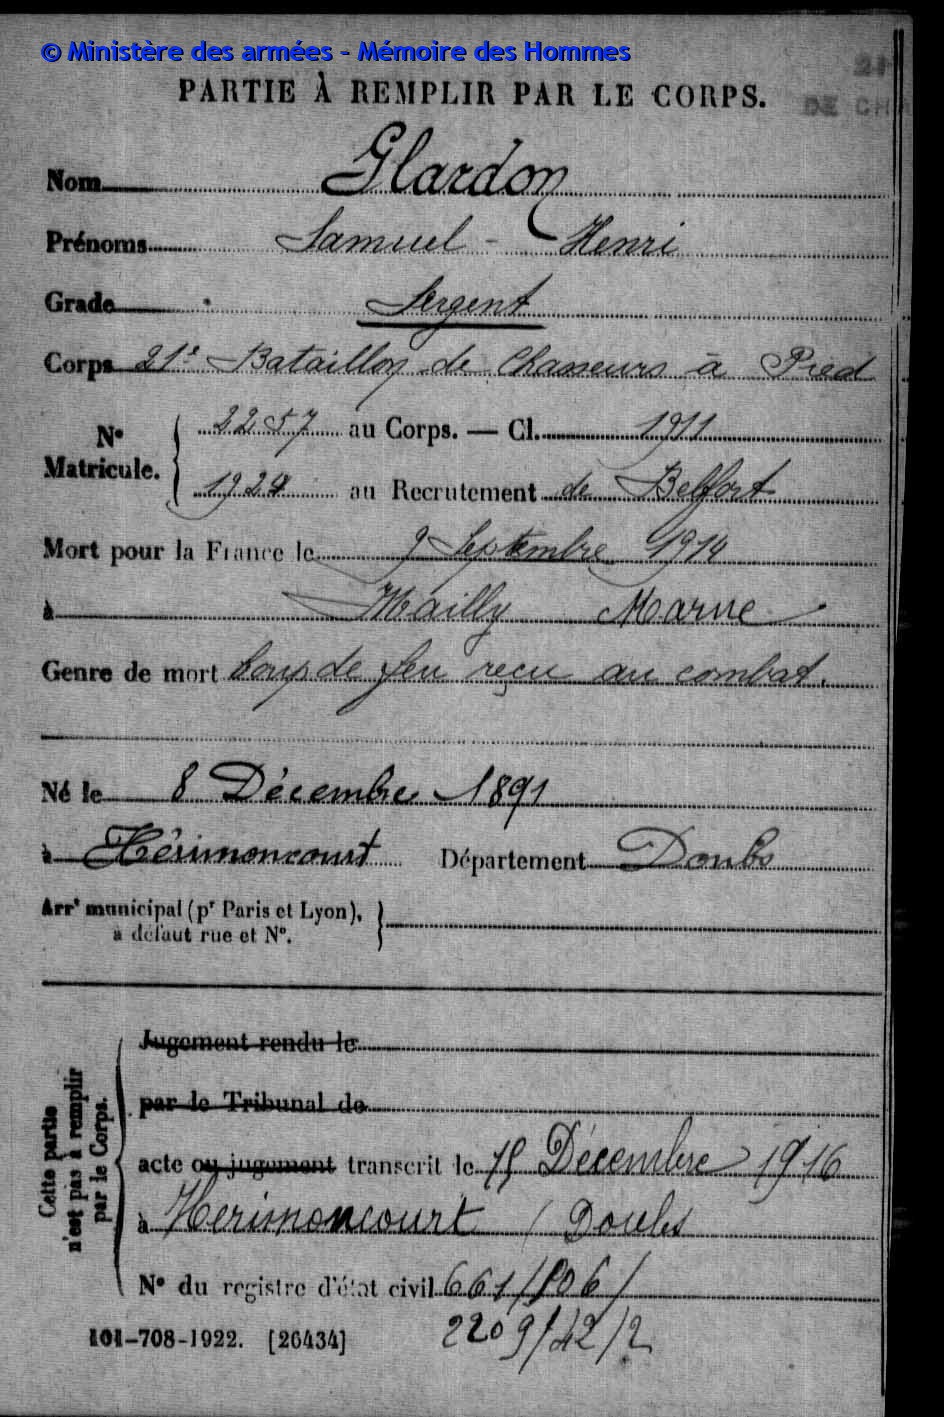 © Ministère des armées - Mémoire des Hommes
PARTIE À REMPLIR PAR LE CORPS.
21
DE CHA
Nom Glardon
Prénoms Samuel - Henri
Grade Sergent
Corps 21e Bataillon de Chasseurs à Pied
N° Matricule. { 2257 au Corps. — Cl. 1911
1924 au Recrutement de Belfort
Mort pour la France le 9 Septembre 1914
à Mailly Marne
Genre de mort Coup de feu reçu au combat.
Né le 8 Décembre 1891
à Hérimoncourt Département Doubs
Arrt municipal (pr Paris et Lyon),
à défaut rue et N°.
Cette partie n'est pas à remplir par le Corps.
Jugement rendu le
par le Tribunal de
acte ou jugement transcrit le 15 Décembre 1916
à Hérimoncourt / Doubs
N° du registre d'état civil 661/806/
101-708-1922. [26434] 2209/42/2